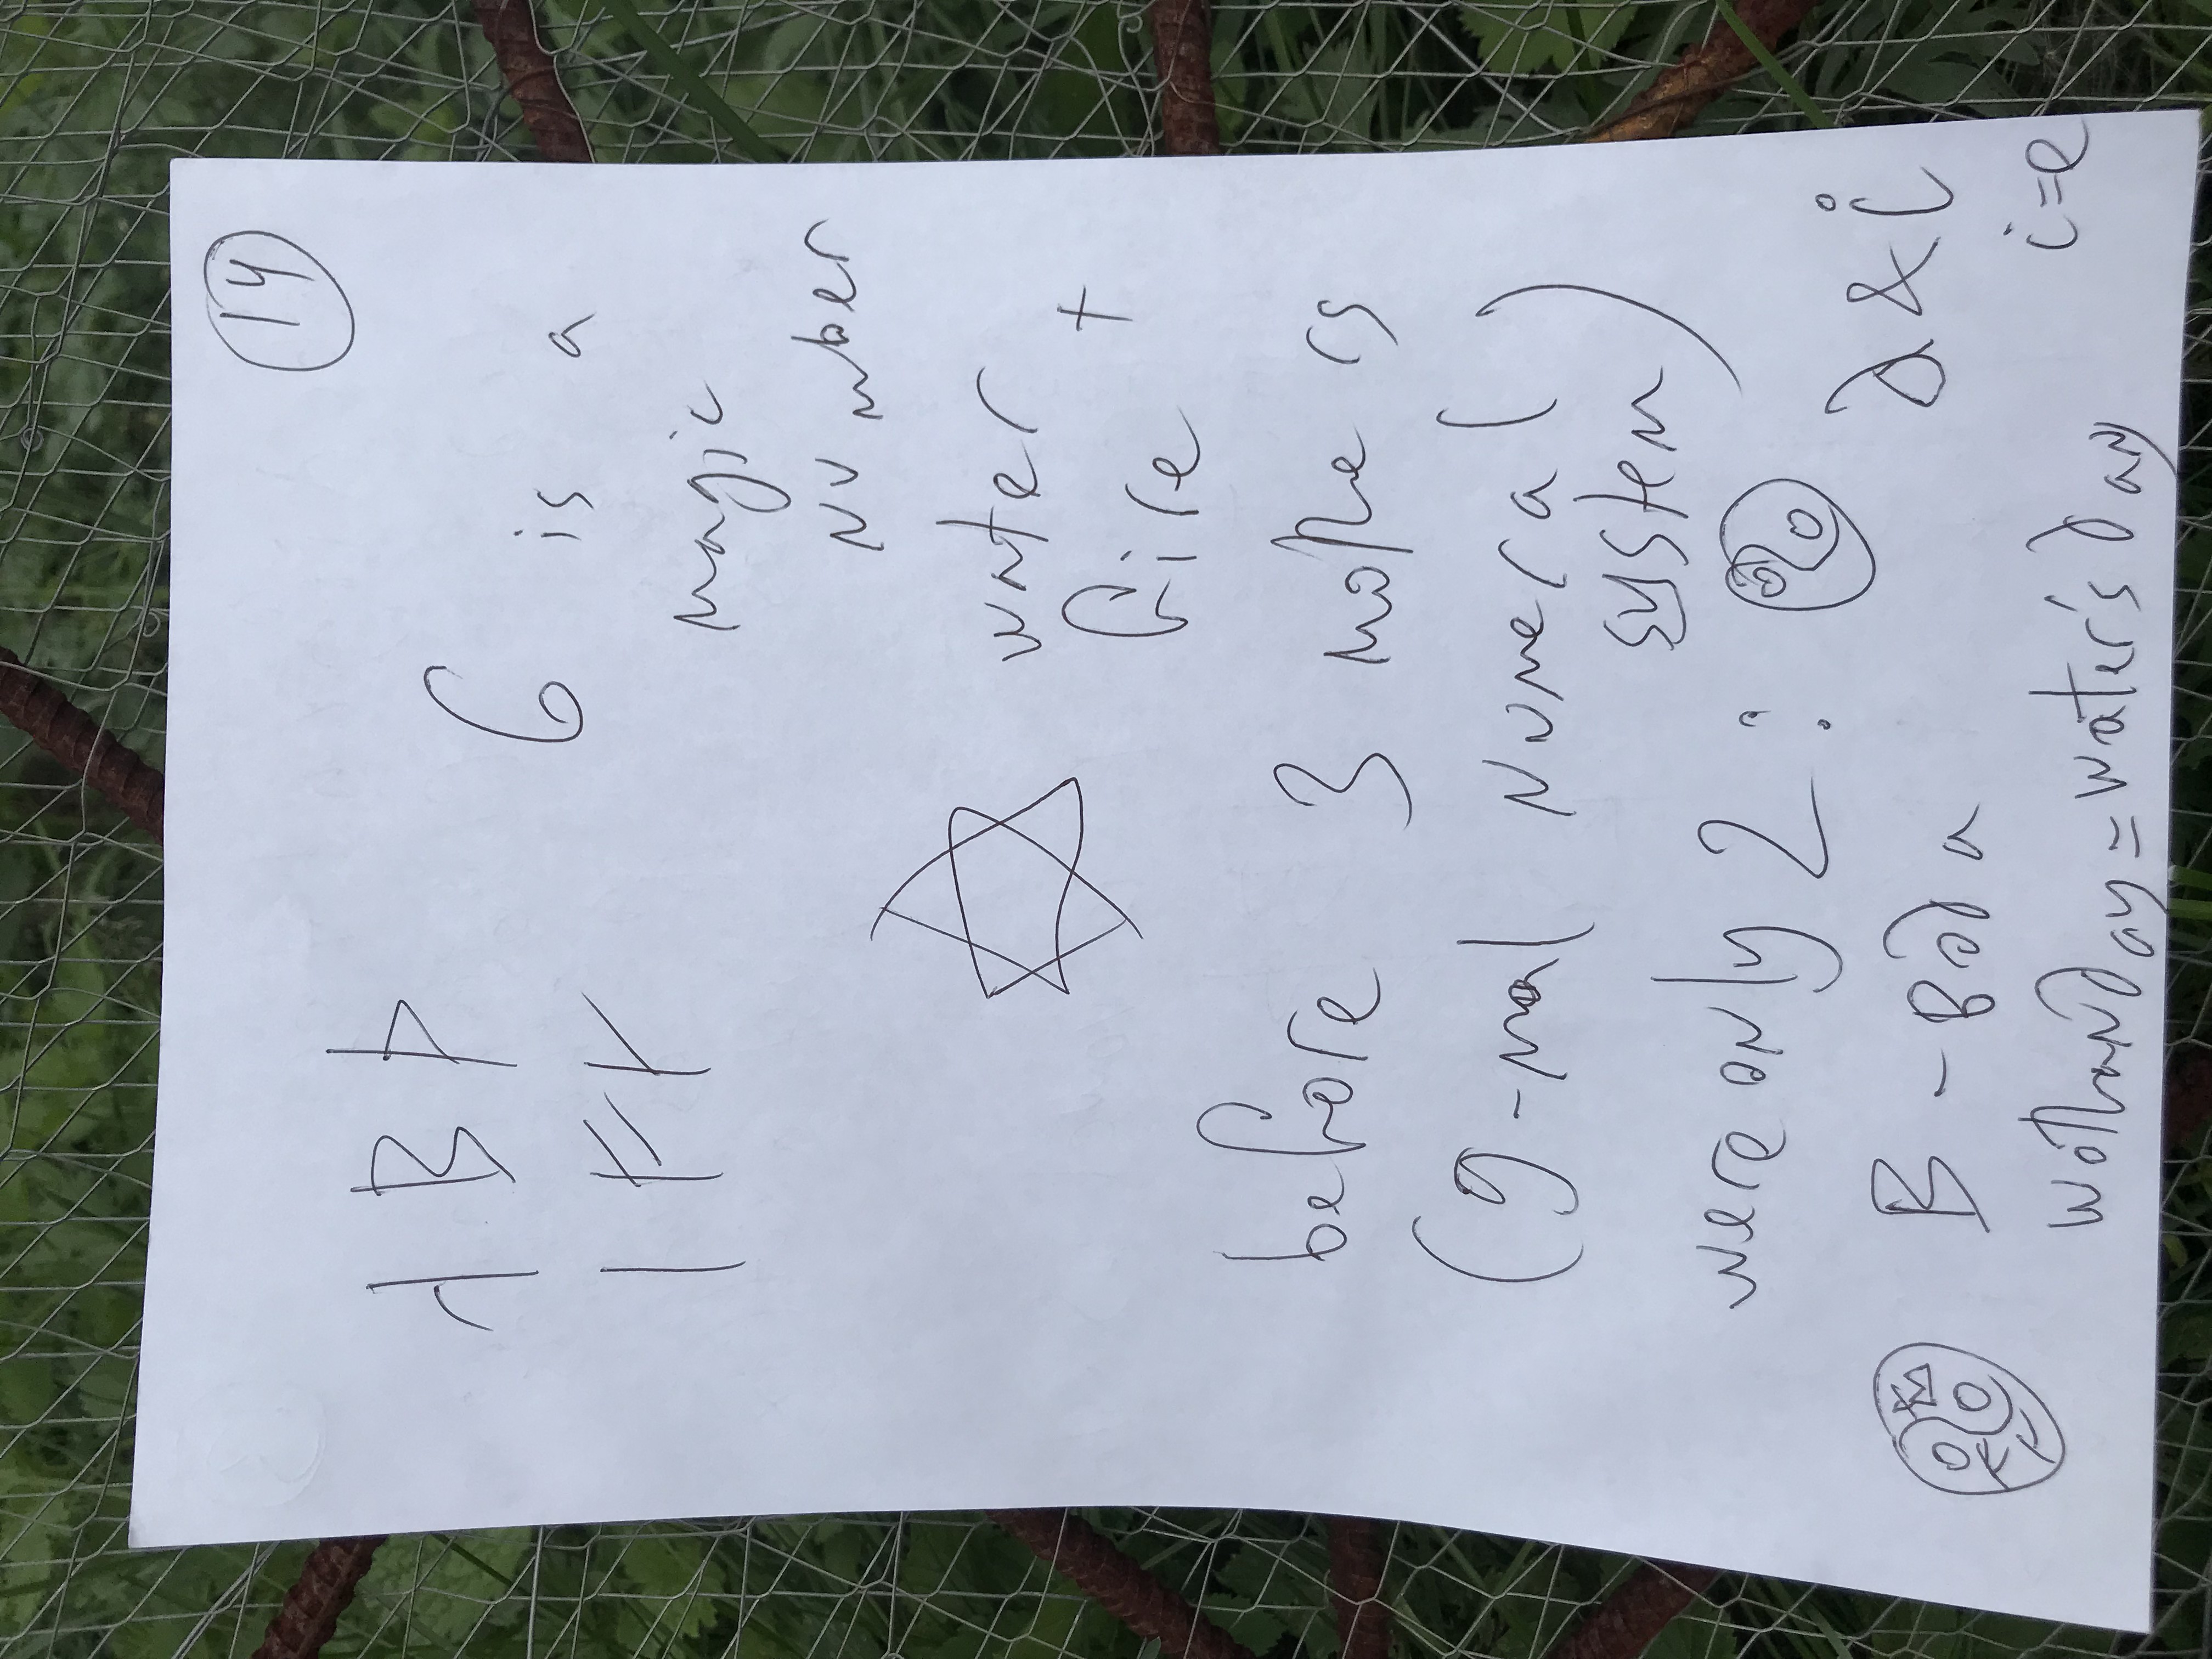 14
ᛆ B ᚦ
6 is a
ᛁ ᚠ ᚴ
magic
number
water
+
fire
before 3 mothers
(9-mal numeral
system)
were only 2:
a & i
B - Boda
i=e
wothanday = water's day